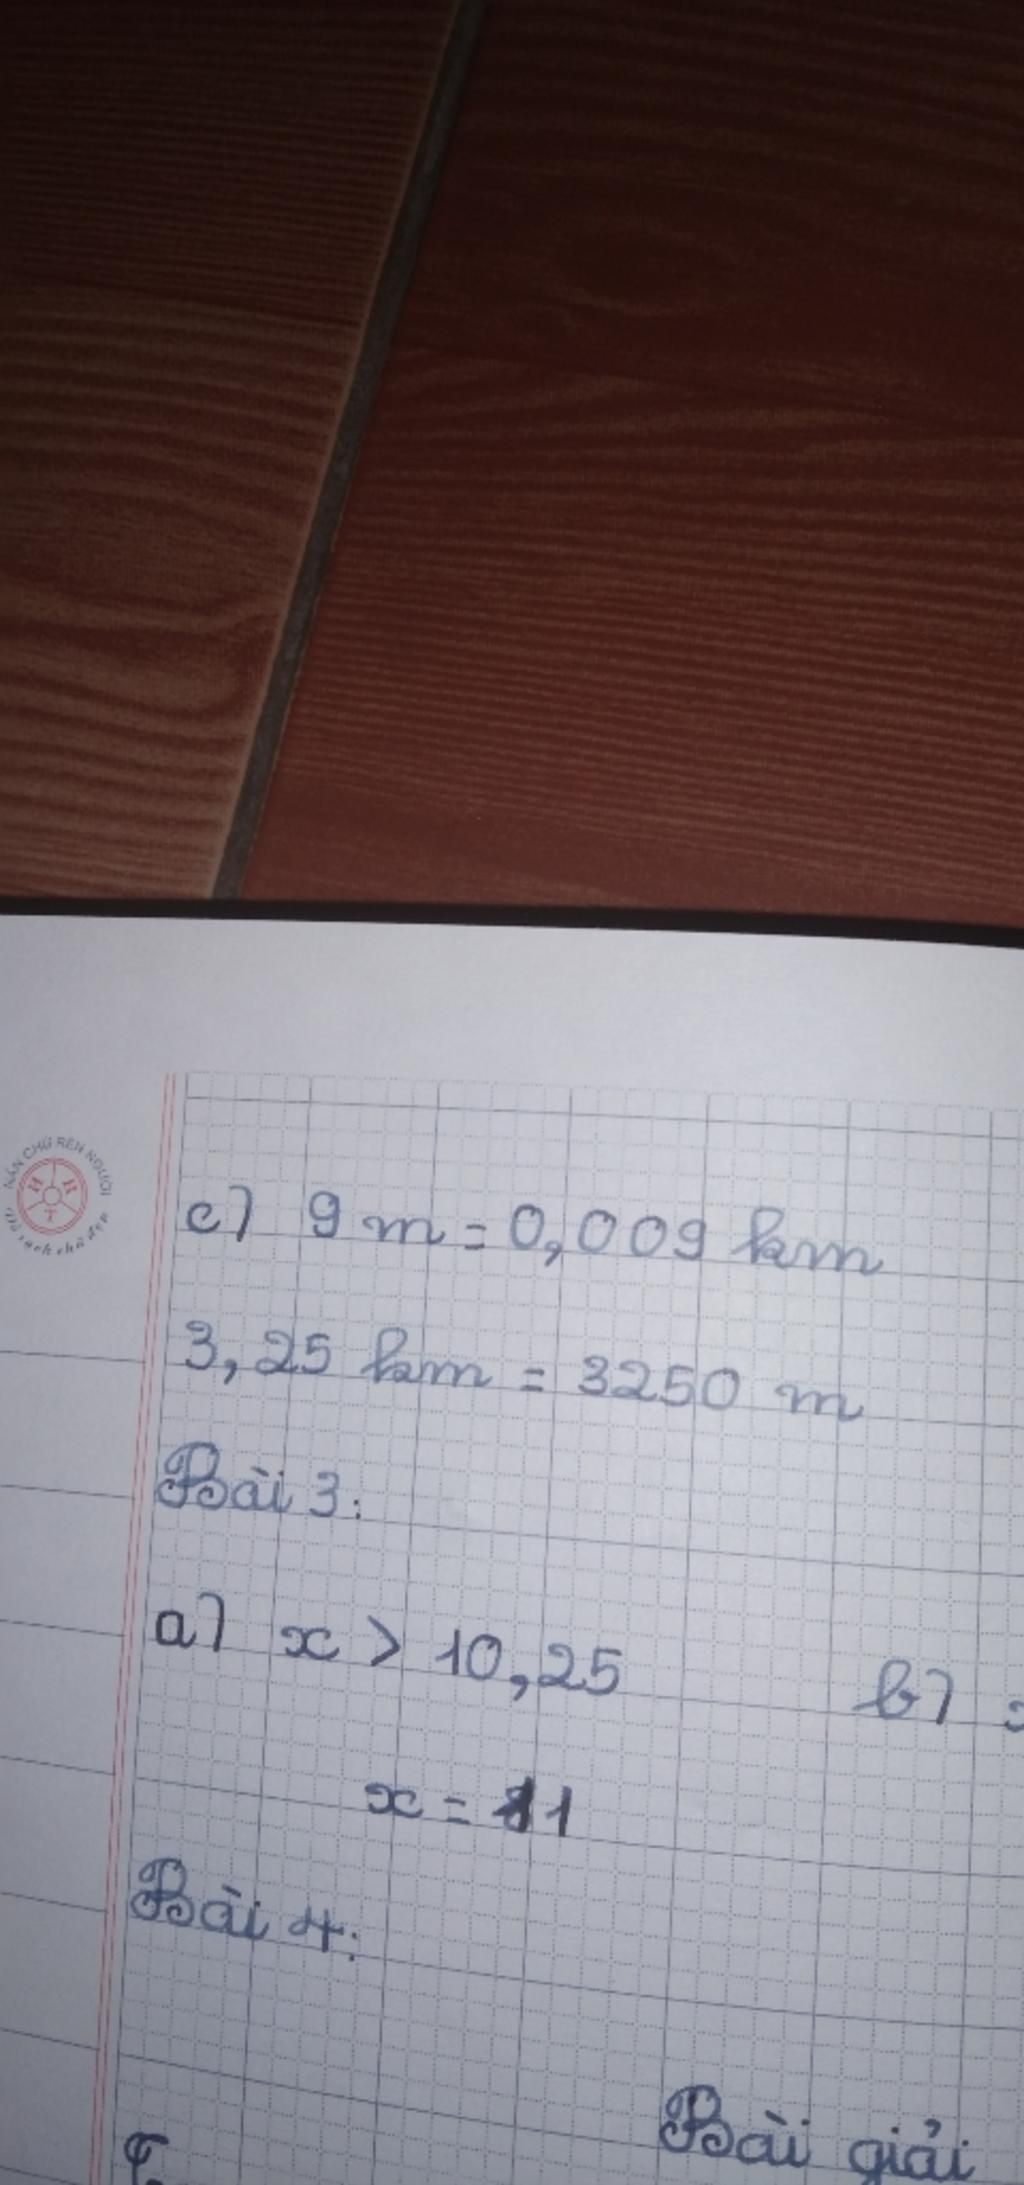 NẮN CHỮ RÈN NGƯỜI
H H
T
c) 9 m = 0,009 km
3,25 km = 3250 m
Bài 3:
a) x > 10,25 b)
x = 11
Bài 4:
Bài giải